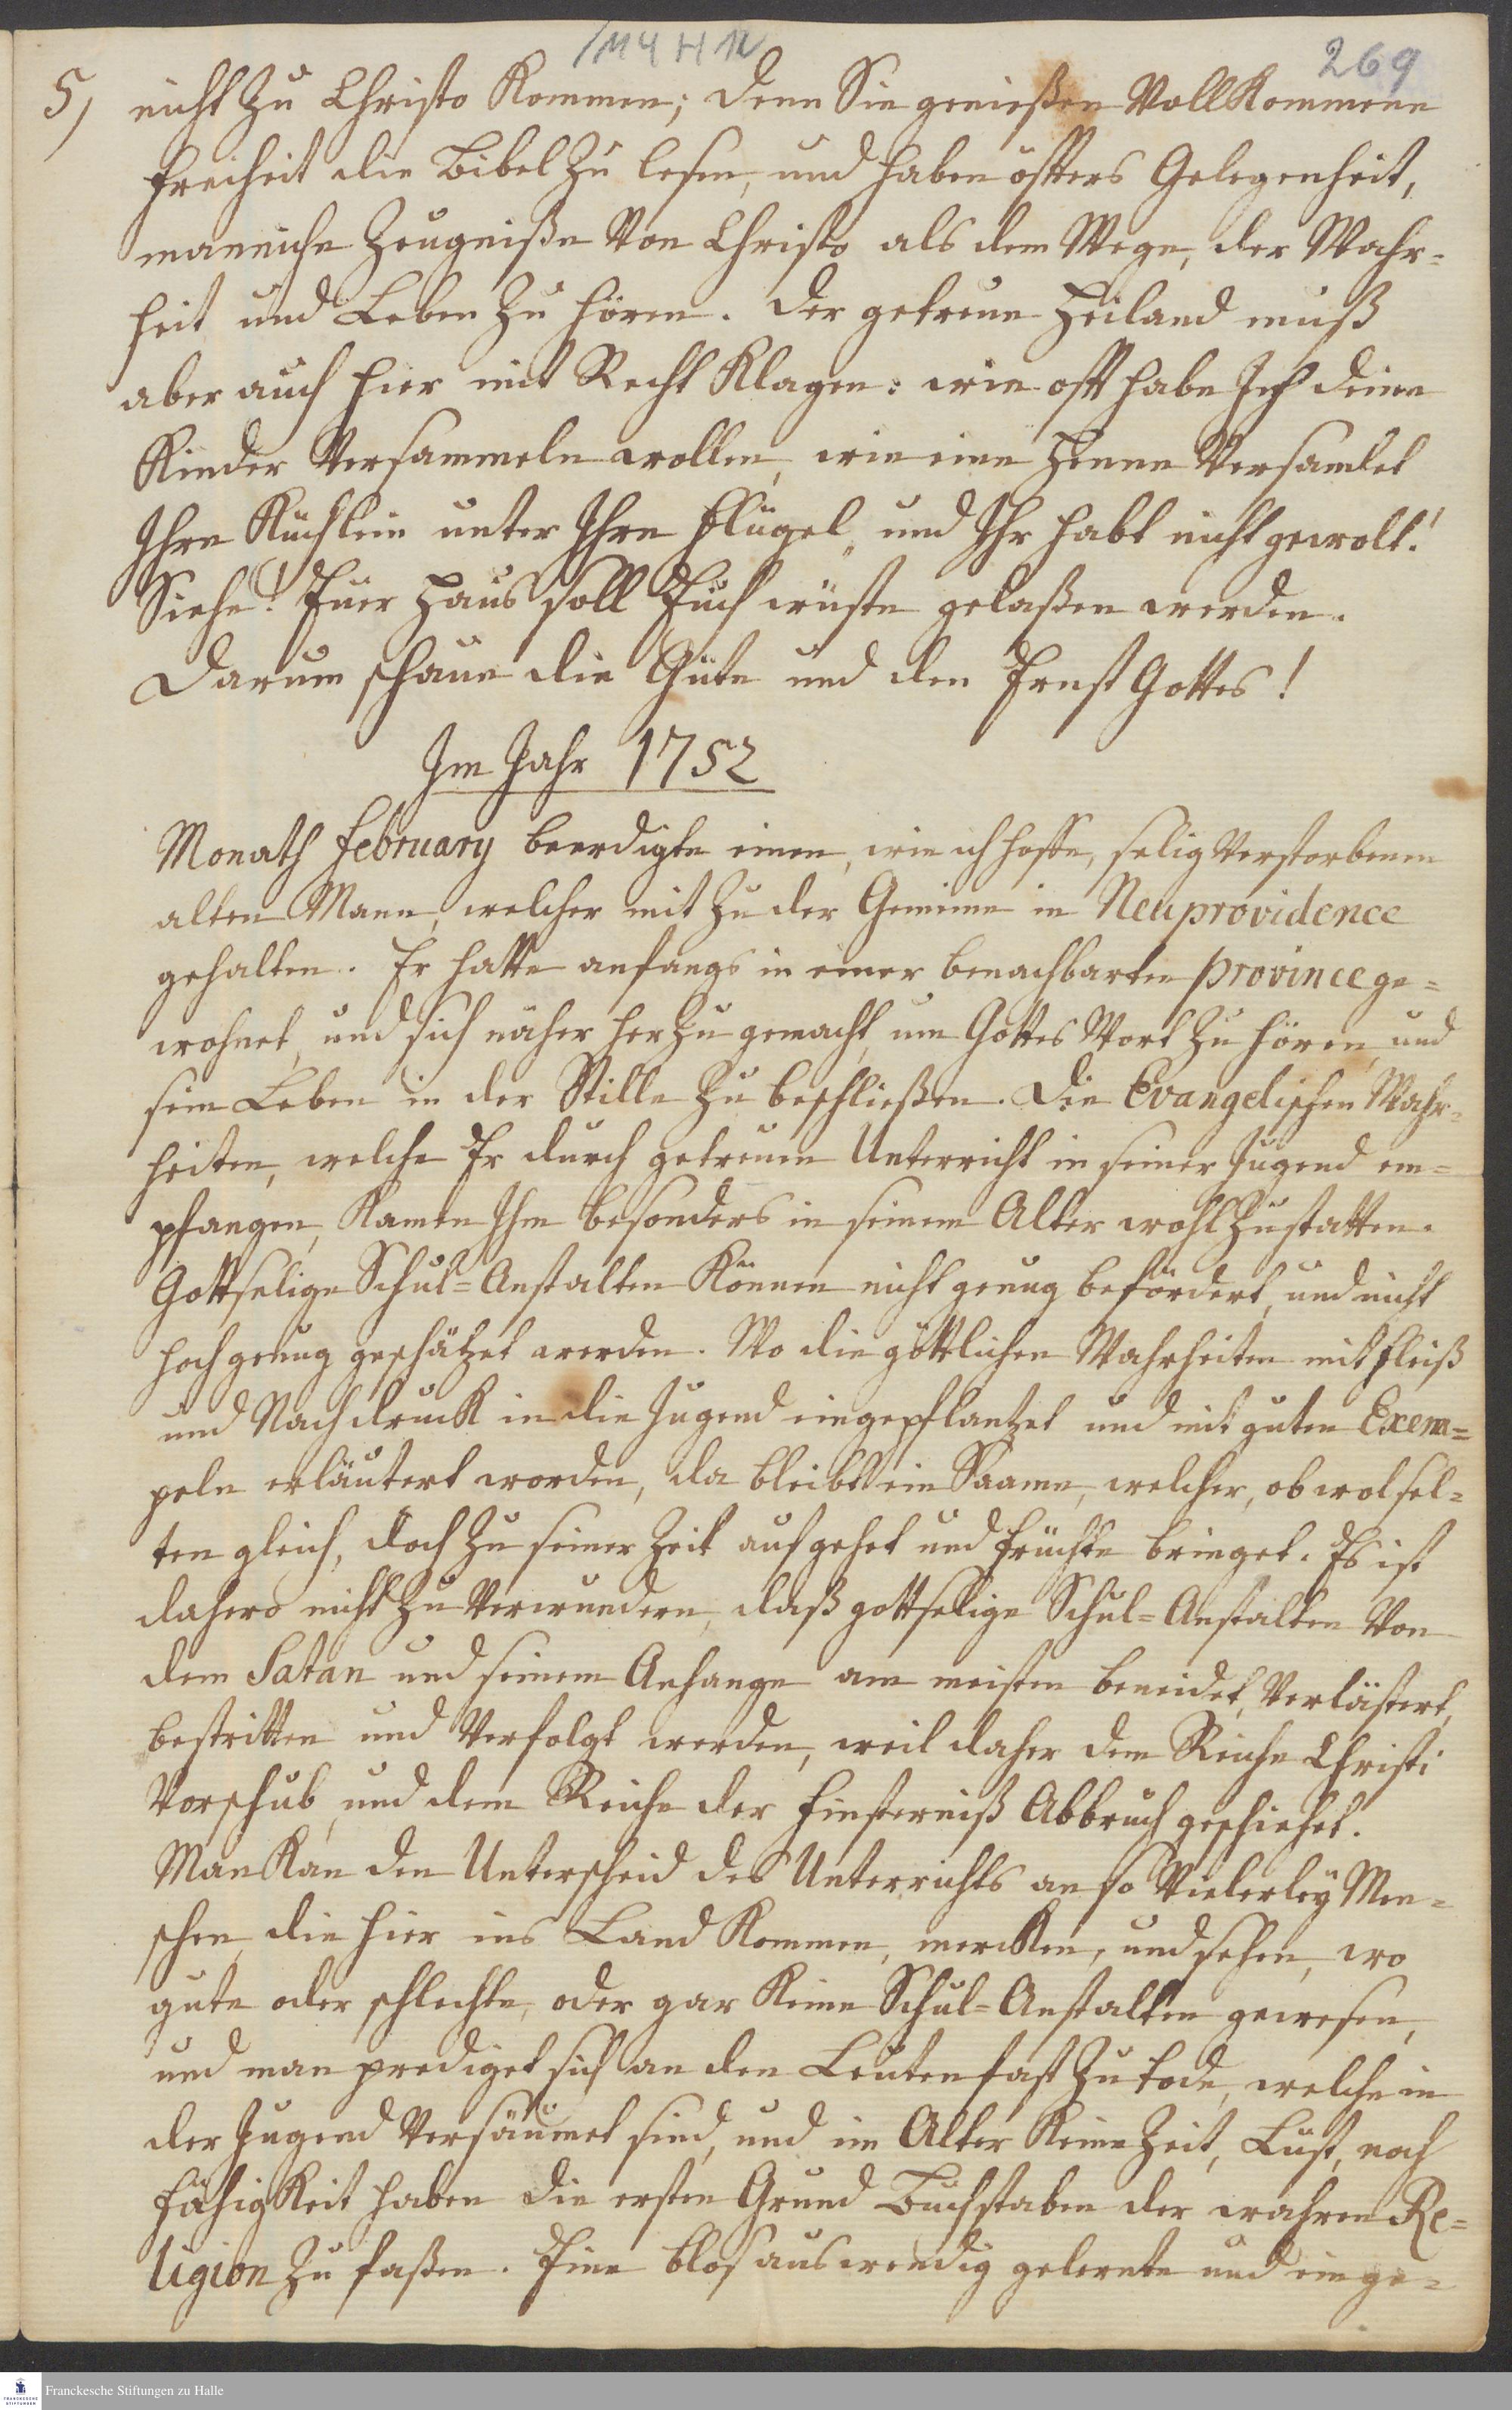 114 H 12
269
5) nicht zu Christo kommen; denn Sie genießen vollkommene
Freiheit die Bibel zu lesen, und haben öffters Gelegenheit,
manniche Zeugniße von Christo als dem Wege, der Wahr=
heit und Leben zu hören. Der getreue Heiland muß
aber auch hier mit Recht klagen: wie offt habe Ich deine
Kinder versammeln wollen, wie eine Henne versamlet
Ihre Küchlein unter Ihre Flügel, und Ihr habt nicht gewolt!
Siehe! Euer Haus soll Euch wüste gelaßen werden.
Darum schaue die Güte und den Ernst Gottes!
Im Jahr 1752
Monath February beerdigte einen, wie ich hoffe, selig verstorbenen
alten Mann, welcher mit zu der Gemeine in Neuprovidence
gehalten. Er hatte anfangs in einer benachbarten province ge=
wohnet, und sich näher herzu gemacht, um Gottes Wort zu hören, und
sein Leben in der Stille zu beschließen. Die Evangelischen Wahr=
heiten, welche Er durch getreuen Unterricht in seiner Jugend em=
pfangen, kamen Ihm besonders in seinem Alter wohl zustatten.
Gottselige Schul=Anstalten können nicht genug befördert, und nicht
hoch genug geschätzet werden. Wo die göttlichen Wahrheiten mit Fleiß
und Nachdruck in die Jugend eingepflantzet und mit guten Exem=
peln erläutert worden, da bleibt ein Saame, welcher, ob wol sel=
ten gleich, doch zu seiner Zeit aufgehet und Früchte bringet. Es ist
dahero nicht zu verwundern, daß gottselige Schul=Anstalten von
dem Satan und seinem Anhange am meisten beneidet, verlästert,
bestritten und verfolgt werden, weil daher dem Reiche Christi
Vorschub, und dem Reiche der Finsterniß Abbruch geschiehet.
Man kan den Unterscheid des Unterrichts an so vielerley Men=
schen, die hier ins Land kommen, mercken, und sehen, wo
gute oder schlechte, oder gar keine Schul=Anstalten gewesen,
und man prediget sich an den Leuten fast zu tode, welche in
der Jugend versäumet sind, und im Alter keine Zeit, Lust, noch
Fähigkeit haben die ersten Grund Buchstaben der wahren Re=
ligion zu faßen. Eine blos auswendig gelernte und einge=
Franckesche Stiftungen zu Halle